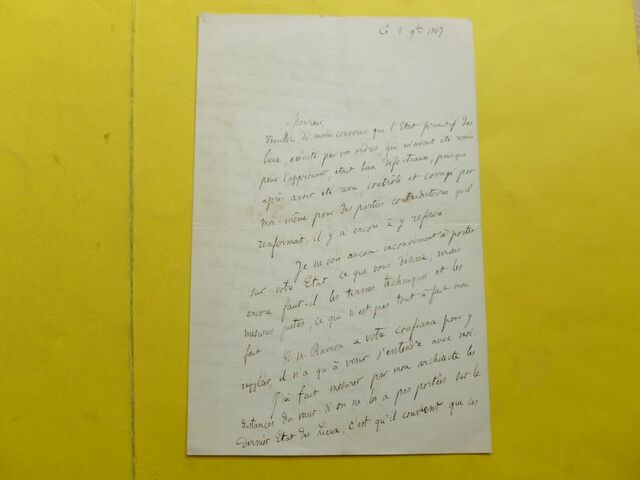 Ce 8 9bre 1867
Monsieur,
Veuillez de moins convenir que l'Etat primitif des
lieux, exécuté par vos ordres, qui m'avait été remis
pour l'approuver, était bien défectueux, puisque
après avoir été revu, contrôlé et corrigé par
moi-même pour des parties contradictoires qu'il
renfermait, il y a encore à y refaire.
Je ne vois aucun inconvénient à porter
sur votre Etat ce que vous désirez, mais
encore faut-il les termes techniques et les
mesures justes, ce qui n'est pas tout à fait mon
fait.
Si M. a votre confiance pour y
suppléer, il n'a qu'à venir s'entendre avec moi
J'ai fait mesurer par mon architecte les
distances du mur: si on ne les a pas portées sur le
dernier Etat des Lieux, c'est qu'il convient que ces